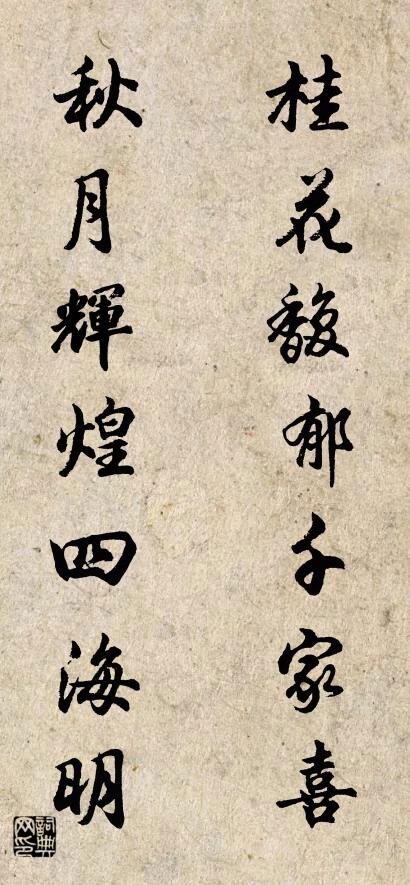 桂花馥郁千家喜
秋月輝煌四海明
詞典網印